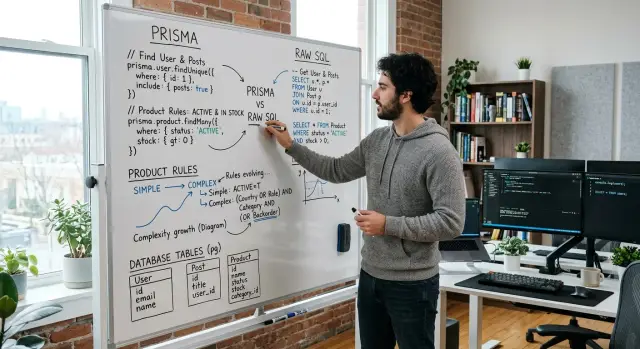 PRISMA
// Find User & Posts
prisma.user.findUnique({
where: { id: 1 },
include: { posts: true }
})
// Product Rules: ACTIVE & IN STOCK
prisma.product.findMany({
where: { status: 'ACTIVE',
stock: { gt: 0 }
})
PRISMA
VS
RAW SQL
RAW SQL
-- Get User & Posts
SELECT u.*, p.*
FROM User u
JOIN Post p
ON u.id = p.user_id
WHERE u.id = 1;
SELECT * FROM Product
WHERE status = 'ACTIVE'
AND stock > 0;
PRODUCT RULES
SIMPLE → COMPLEX
Rules evolving...
Simple: ACTIVE=T
Complex: (Country OR Role) AND
Category AND
(OR Backorder)
Complexity growth (Diagram)
DATABASE TABLES (pg)
User
id
email
name
Post
id
title
user_id
Product
id
name
status
stock
category_id